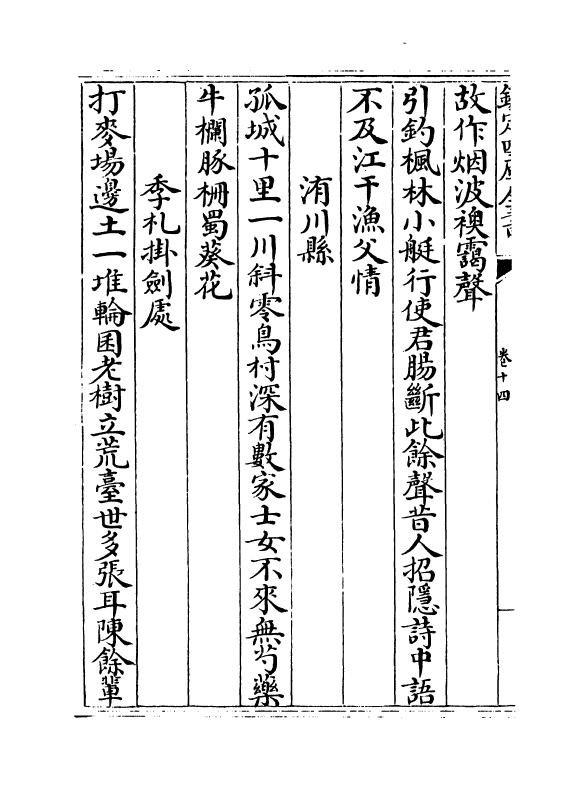 欽定四庫全書
卷十四
故作烟波襖靄聲
引釣楓林小艇行使君腸斷此餘聲昔人招隱詩中語
不及江干漁父情
洧川縣
孤城十里一川斜零鳥村深有數家士女不來無芍藥
牛欄豚柵蜀葵花
季札掛劍處
打麥場邊土一堆輪囷老樹立荒臺世多張耳陳餘輩